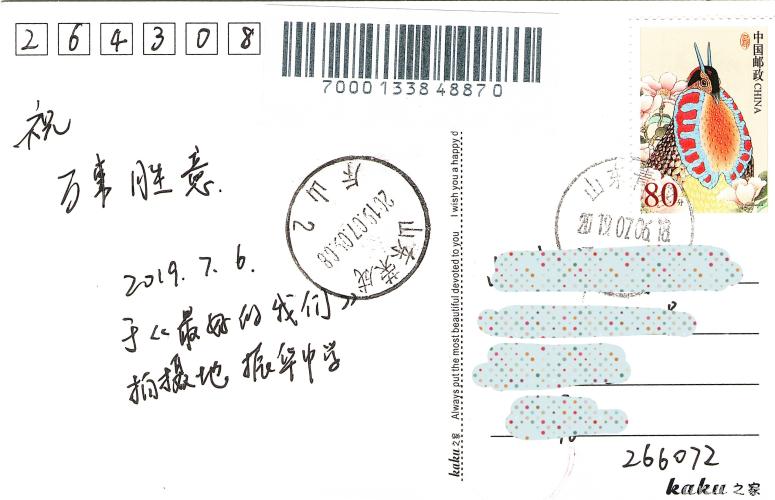 264308
7000133848870
中国邮政 CHINA
80分
祝
万事胜意.
山东荣成
2019.07.08.08
东山 2
山东青
2019.07.06.18
2019.7.6.
于《最好的我们》
拍摄地 振华中学
kaku之家 Always put the most beautiful devoted to you I wish you a happy d
266072
kaku之家